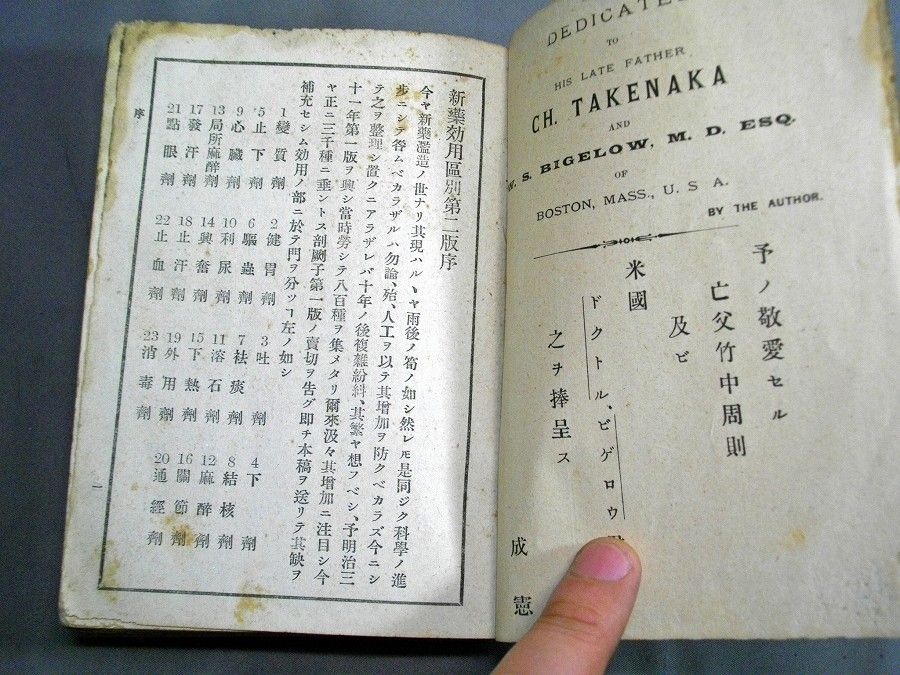 DEDICATED
TO
HIS LATE FATHER
CH. TAKENAKA
AND
W. S. BIGELOW, M. D. ESQ.
OF
BOSTON, MASS., U. S. A.
BY THE AUTHOR.
予ノ敬愛セル
亡父竹中周則
及ビ
米國
ドクトル、ビゲロウ
之ヲ捧呈ス
成憲
新藥効用區別第二版序
今ヤ新藥濫造ノ世ナリ其現ハルヽヤ雨後ノ筍ノ如シ然レモ是同ジク科學ノ進
步ニシテ咎ムベカラザルハ勿論、殆、人工ヲ以テ其增加ヲ防グベカラズ今ニシ
テ之ヲ整理シ置クニアラザレバ十年ノ後複雜紛糾、其繁ヤ想フベシ、予明治三
十一年第一版ヲ興シ當時勞シテ八百種ヲ集メタリ爾來汲々其增加ニ注目シ今
ヤ正ニ三千種ニ垂ントス剞劂子第一版ノ賣切ヲ告グ即チ本稿ヲ送リテ其缺ヲ
補充セシム効用ノ部ニ於テ門ヲ分ツヿ左ノ如シ
1變質劑 2健胃劑 3吐劑 4下劑
5止下劑 6驅蟲劑 7祛痰劑 8結核劑
9心臟劑 10利尿劑 11溶石劑 12麻醉劑
13局所麻醉劑 14興奮劑 15下熱劑 16關節劑
17發汗劑 18止汗劑 19外用劑 20通經劑
21點眼劑 22止血劑 23消毒劑
序
一